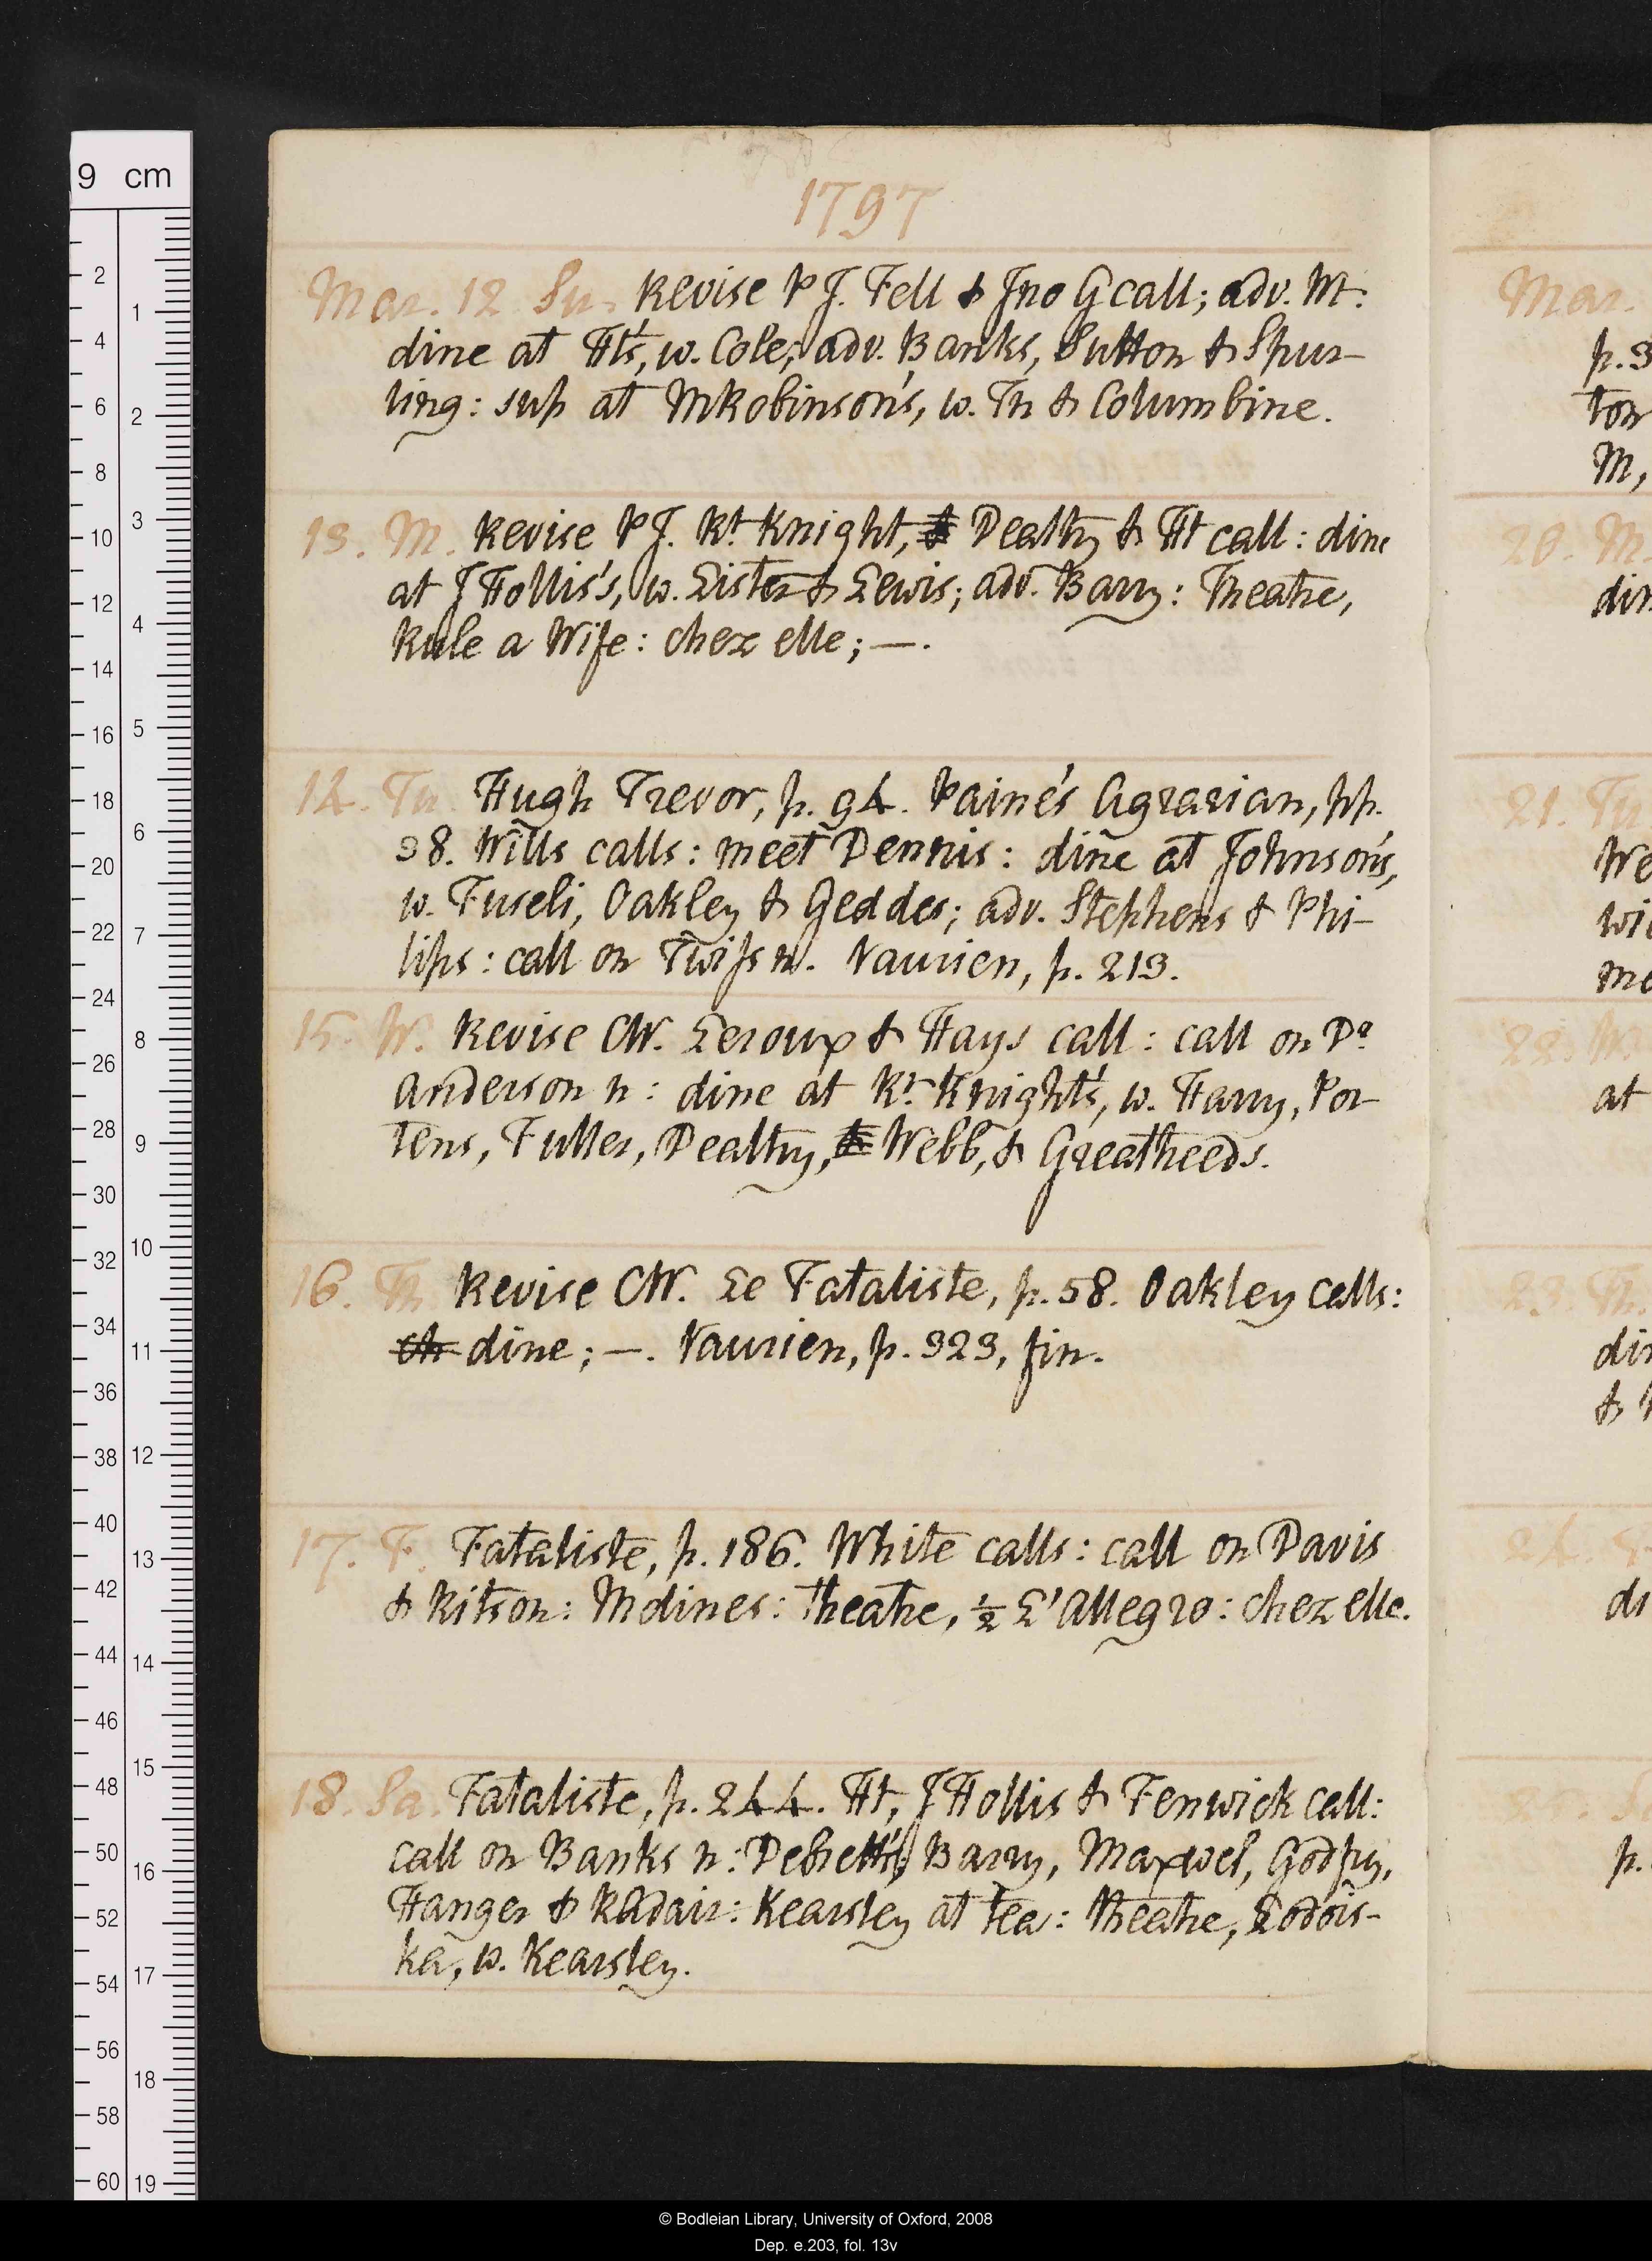 1797
Mar. 12. Su. Revise PJ. Fell & Jno G call; adv. M:
dine at Ht's, w. Cole; adv. Banks, Sutton & Spur-
ling: sup at MRobinson's, w. Th & Columbine.
13. M. Revise PJ. Rt Knight, & Dealtry & Ht call: dine
at JHollis's, w. Lister & Lewis; adv. Barry: Theatre,
Rule a Wife: chez elle; —.
14. Tu. Hugh Trevor, p. 94. Paine's Agrarian, pp.
38. Wills calls: meet Dennis: dine at Johnson's,
w. Fuseli, Oakley & Geddes; adv. Stephens & Phi-
lips: call on Twiss n. Vaurien, p. 213.
15. W. Revise CW. Leroux & Hays call: call on Dr
Anderson n: dine at Rt Knight's, w. Harry, Por-
tens, Fuller, Dealtry, & Webb, & Greatheeds.
16. Th. Revise CW. Le Fataliste, p. 58. Oakley calls:
ch dine; —. Vaurien, p. 323, fin.
17. F. Fataliste, p. 186. White calls: call on Davis
& Ritson: M dines: Theatre, ½ L'Allegro: chez elle.
18. Sa. Fataliste, p. 244. Ht, JHollis & Fenwick call:
call on Banks n: Debrett's, Barry, Maxwel, Godfry,
Hanger & RAdair: Kearsley at tea: theatre, Lodois-
ka, w. Kearsley.
Mar.
p. 3
ton
M,
20. M.
din
21. Tu
We
wi
me
22. W.
at
23. Th.
din
&
24. F
di
25. S
p.
9 cm
2
4
6
8
10
12
14
16
18
20
22
24
26
28
30
32
34
36
38
40
42
44
46
48
50
52
54
56
58
60
1
2
3
4
5
6
7
8
9
10
11
12
13
14
15
16
17
18
19
© Bodleian Library, University of Oxford, 2008
Dep. e.203, fol. 13v